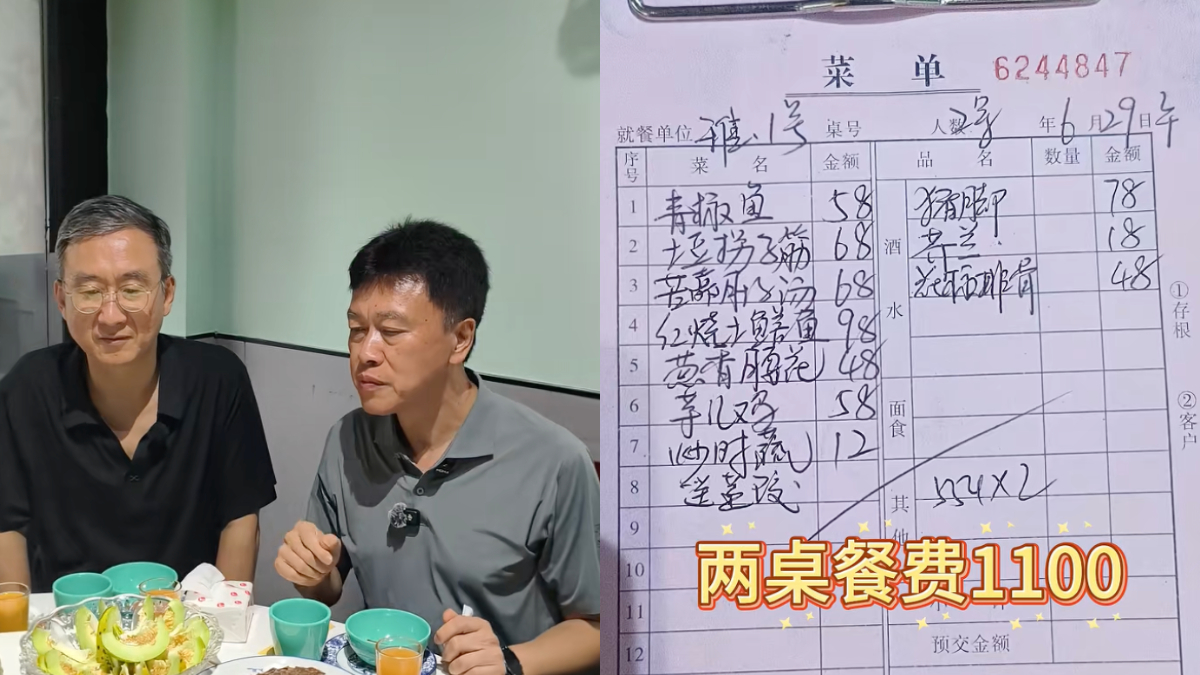 菜 单 6244847
就餐单位 雅.1号 桌号 人数 2号 年6月29日午
序号 菜 名 金额 品 名 数量 金额
1 青椒鱼 58 猪脚 78
2 土豆拐子筋 68 酒水 芥兰 18
3 肚子汤 68 排骨 48
4 红烧土鳝鱼 98
5 葱香腰花 48
6 芋儿鸡 58 面食
7 炒时蔬 12
8 送 其他 554×2
9
10
11
12 预交金额
①存根
②客户
两桌餐费1100